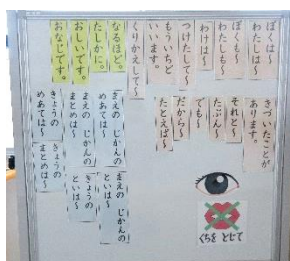 ぼくは〜
わたしは〜
ぼくも〜
わたしも〜
わけは〜
つけたして〜
もういちど
いいます。
くりかえして〜
なるほど。
たしかに。
おしいです。
おなじです。
きづいたことが
あります。
それと〜
たぶん〜
でも〜
だから〜
たとえば〜
まえの じかんの
めあては〜
まえの じかんの
まとめは〜
きょうの
めあては〜
まえの じかんの
といは〜
きょうの
といは〜
きょうの
まとめは〜
くちを とじて